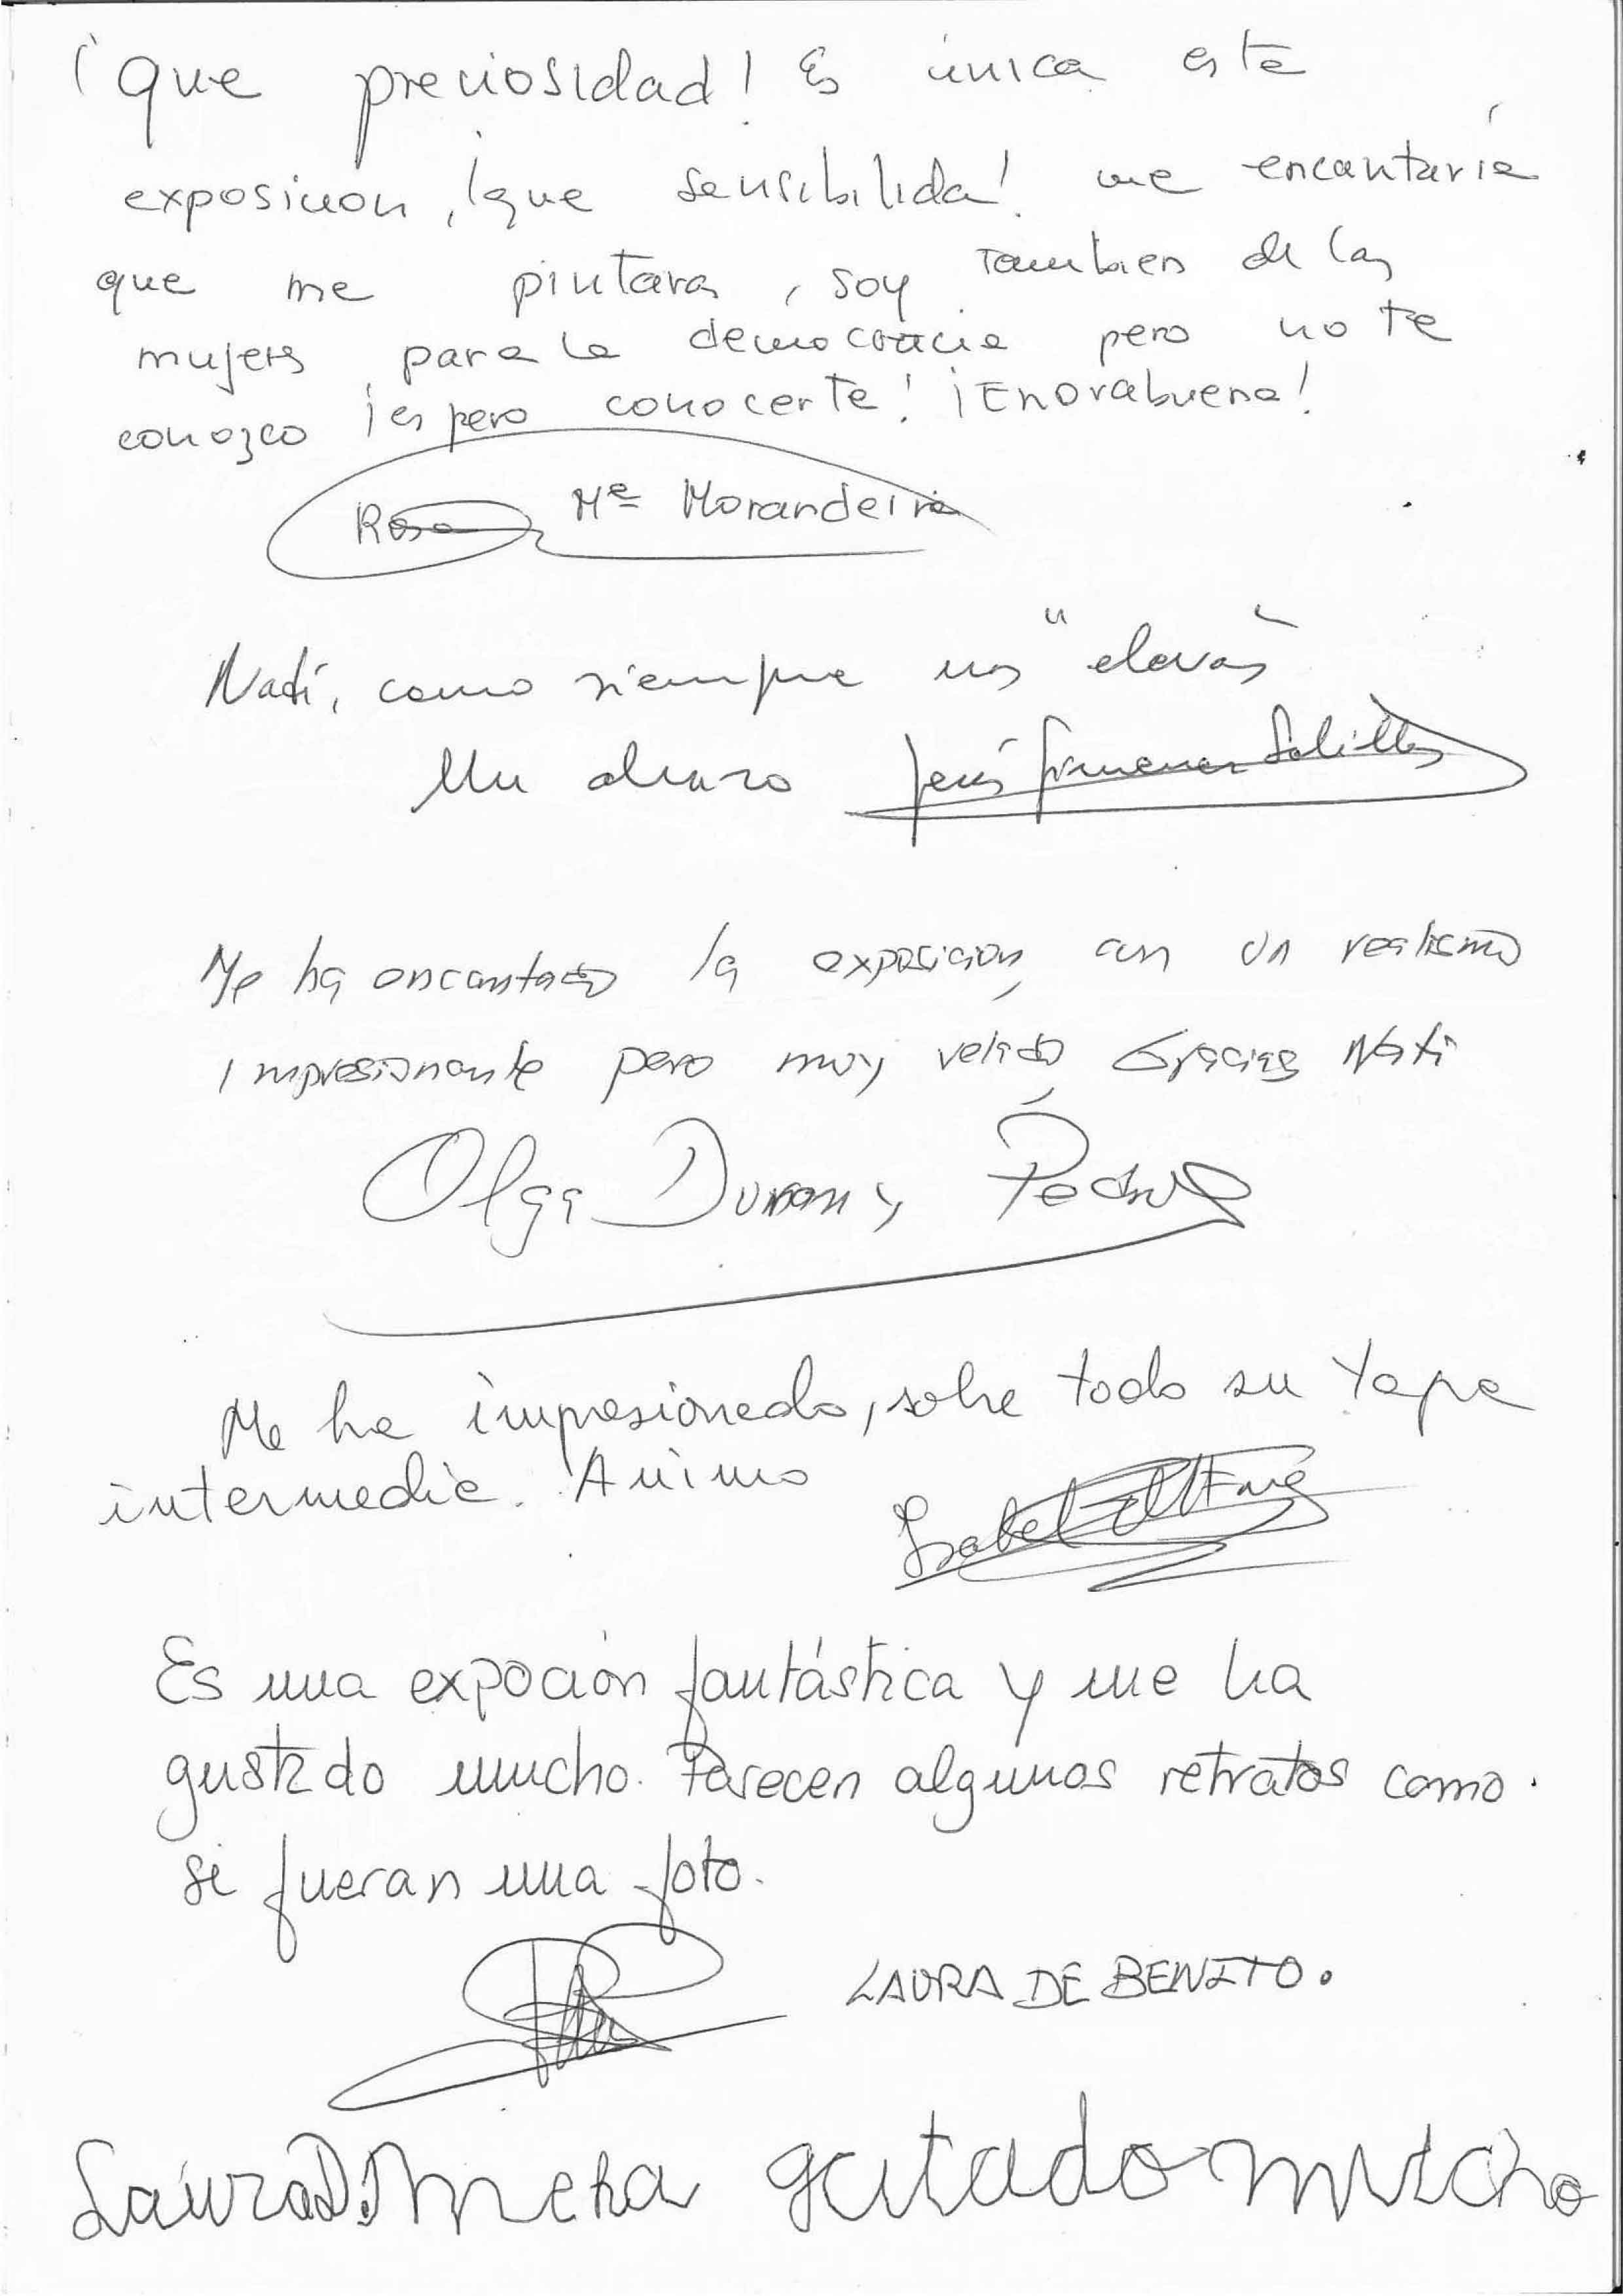 ¡que preciosidad! Es única esta
exposicion, ¡que sensibilida! me encantaría
que me pintaras, soy tambien de las
mujeres para la democracia pero no te
conozco ¡espero conocerte! ¡Enorabuena!
Rosa Mª Morandeira
Nati, como siempre nos "elevas"
Un abrazo Jesús Jimenez
Me ha encantado la exposición, con un realismo
impresionante pero muy velado Gracias Nati
Olga Duran y Pedro
Me ha impresionado, sobre todo su
intermedia. Animo
Isabel
Es una expoción fantástica y me ha
gustado mucho. Parecen algunos retratos como
si fueran una foto.
LAURA DE BENITO.
Laura D. meha gutado mucho